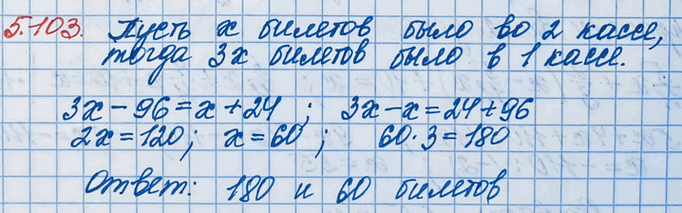 5.103. Пусть x билетов было во 2 кассе,
тогда 3x билетов было в 1 кассе.
3x - 96 = x + 24 ; 3x - x = 24 + 96
2x = 120 ; x = 60 ; 60 · 3 = 180
Ответ: 180 и 60 билетов